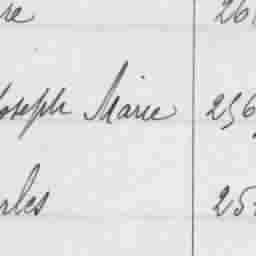 re 26
Joseph Marie 256
rles 25